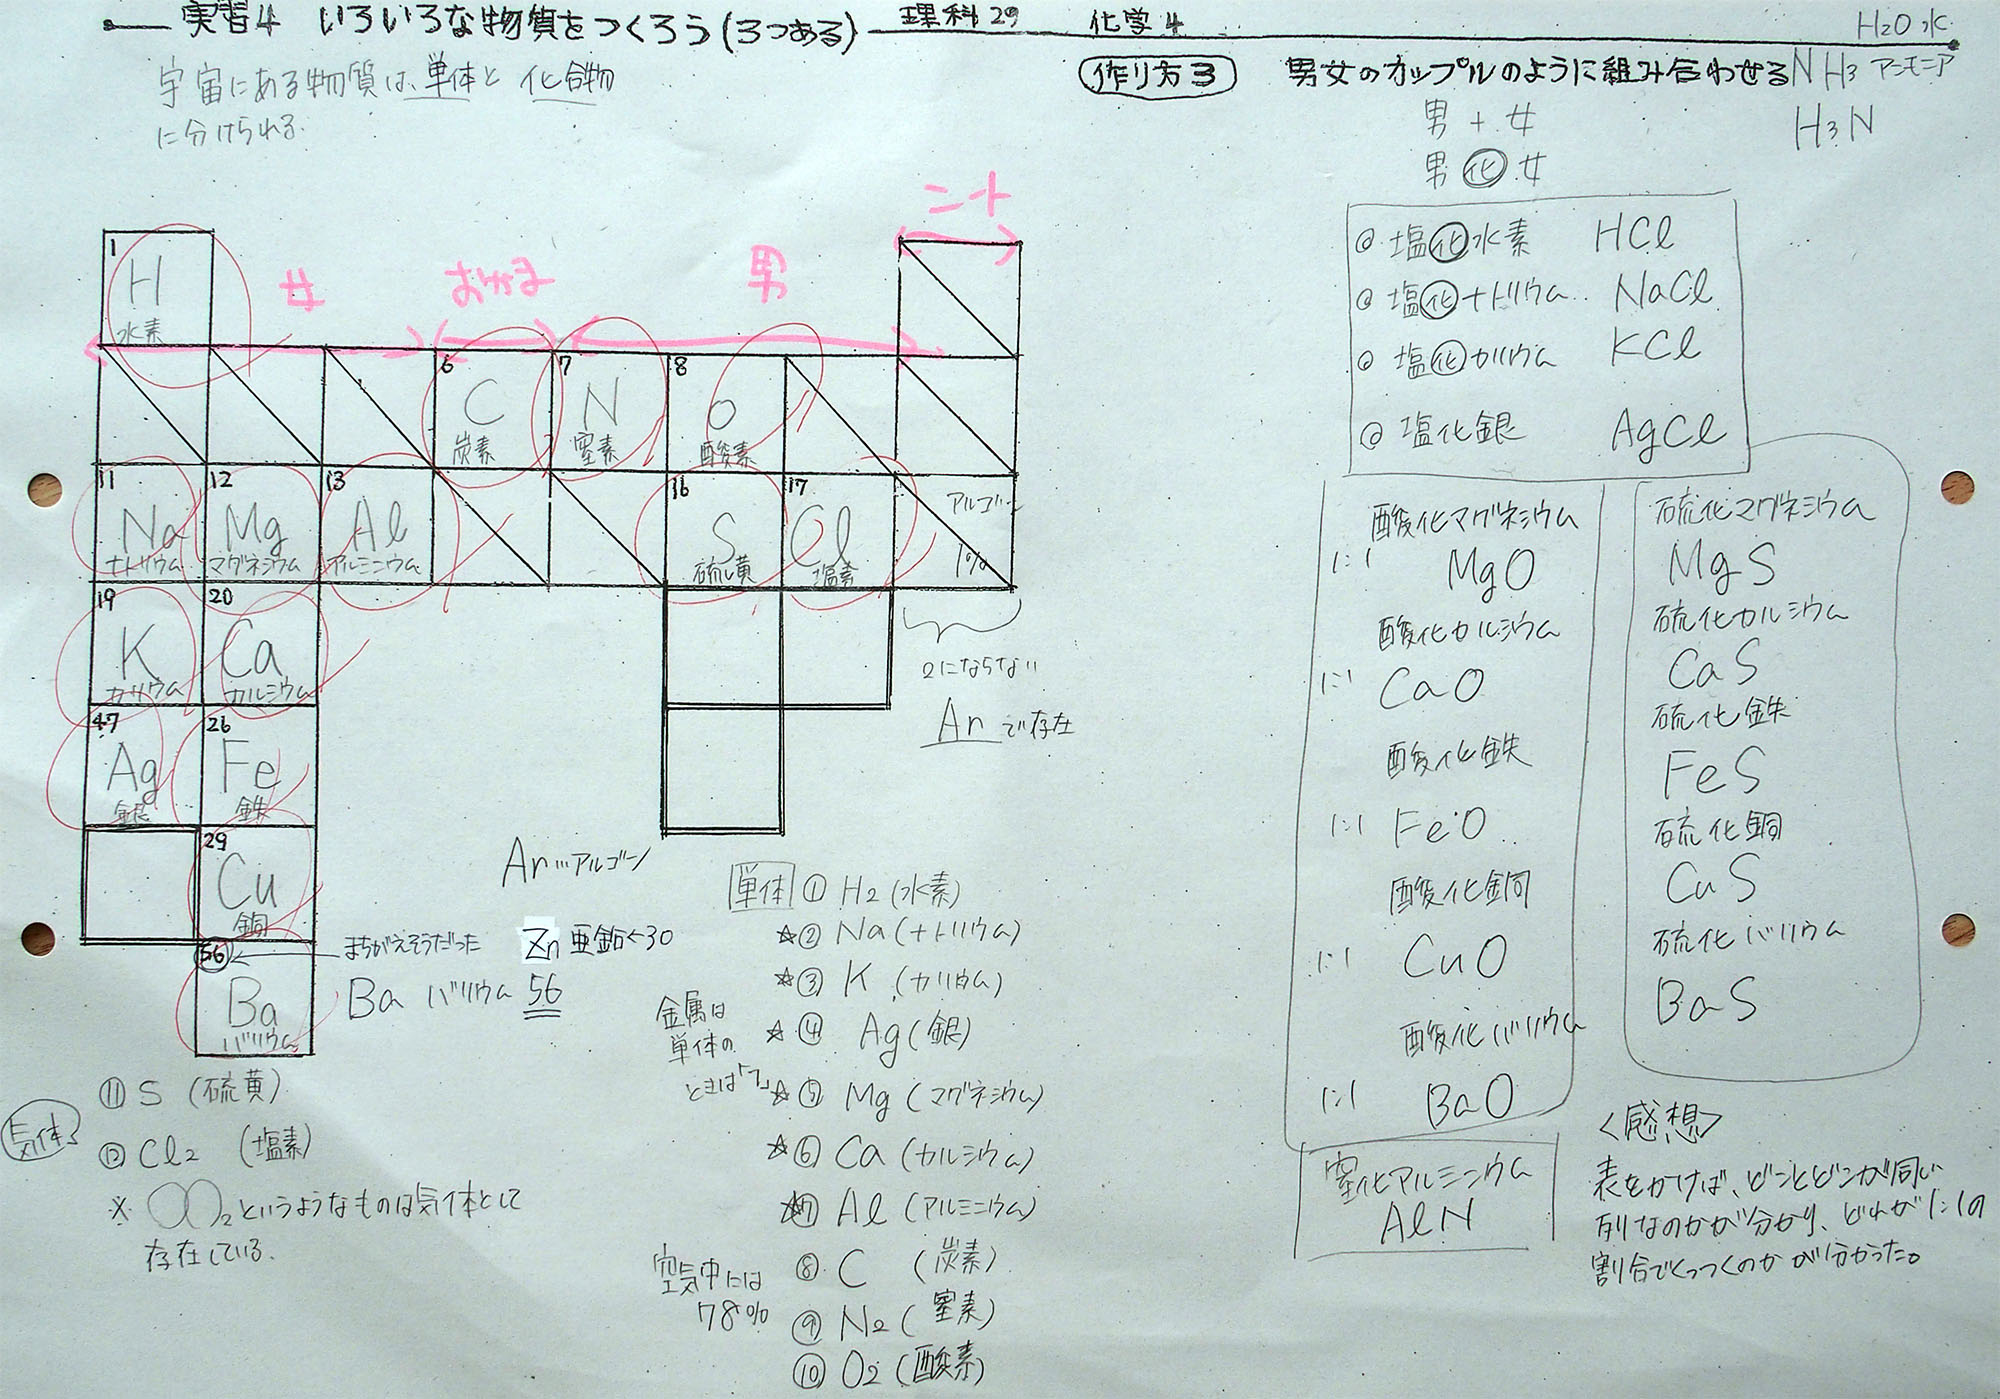 実習4 いろいろな物質をつくろう(3つある) 理科29 化学4
H2O 水
宇宙にある物質は、単体と化合物
に分けられる.
作り方3 男女のカップルのように組み合わせる
NH3 アンモニア
H3N
男 + 女
男 化 女
ニート
女 おかま 男
1 H 水素
6 C 炭素
7 N 窒素
8 O 酸素
11 Na ナトリウム
12 Mg マグネシウム
13 Al アルミニウム
16 S 硫黄
17 Cl 塩素
アルゴン
1%
19 K カリウム
20 Ca カルシウム
47 Ag 銀
26 Fe 鉄
29 Cu 銅
56 Ba バリウム
2にならない
Ar で存在
Ar…アルゴン
まちがえそうだった
Zn 亜鉛←30
Ba バリウム 56
単体 ① H2 (水素)
☆② Na (ナトリウム)
☆③ K (カリウム)
☆④ Ag (銀)
☆⑤ Mg (マグネシウム)
☆⑥ Ca (カルシウム)
☆⑦ Al (アルミニウム)
⑧ C (炭素)
⑨ N2 (窒素)
⑩ O2 (酸素)
金属は
単体の
ときは「1」
空気中には
78%
⑪ S (硫黄)
気体
⑫ Cl2 (塩素)
※ 〇〇2というようなものは気体として
存在している.
◎ 塩化水素 HCl
◎ 塩化ナトリウム NaCl
◎ 塩化カリウム KCl
◎ 塩化銀 AgCl
酸化マグネシウム
1:1 MgO
酸化カルシウム
1:1 CaO
酸化鉄
1:1 FeO
酸化銅
1:1 CuO
酸化バリウム
1:1 BaO
硫化マグネシウム
MgS
硫化カルシウム
CaS
硫化鉄
FeS
硫化銅
CuS
硫化バリウム
BaS
窒化アルミニウム
AlN
<感想>
表をかけば、どことどこが同じ
列なのかが分かり、どれが1:1の
割合でくっつくのかが分かった。